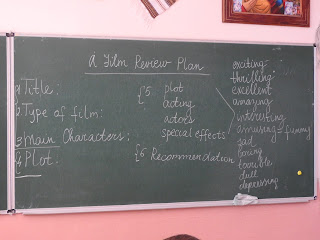 A Film Review Plan
1 Title:
2 Type of film:
3 Main Charactors:
4 Plot.
5 plot
acting
actors
special effects
6 Recommendation
exciting
thrilling
excellent
amazing
interesting
amusing = funny
sad
boring
terrible
dull
depressing